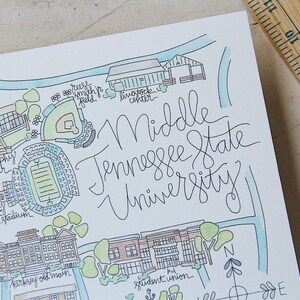 reese
smith jr.
field
livestock
center
Middle
Tennessee State
University
phy
stadium
kirksey old main
student union
N
E